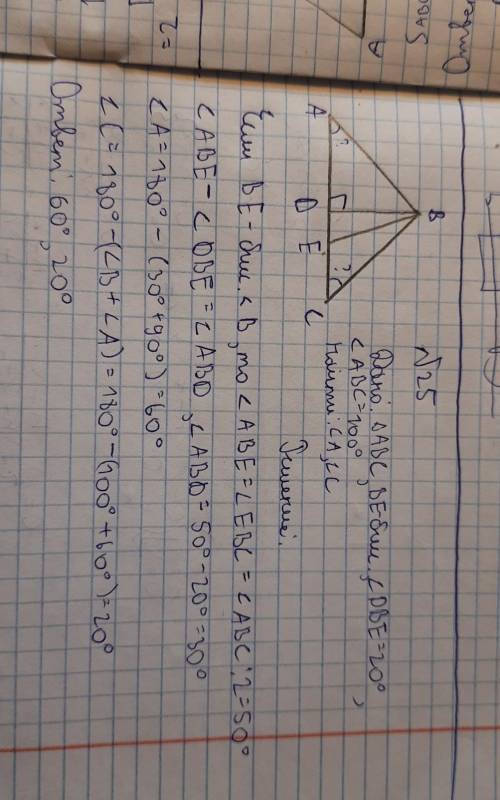 №25
Дано: ΔABC, BE-бис., ∠DBE=20°,
∠ABC=100°,
Найти: ∠A, ∠C
Решение:
A
?
D
E
?
C
B
Если BE-бис. ∠B, то ∠ABE=∠EBC=∠ABC:2=50°
∠ABE-∠DBE=∠ABD, ∠ABD=50°-20°=30°
∠A=180°-(30°+90°)=60°
∠C=180°-(∠B+∠A)=180°-(100°+60°)=20°
Ответ: 60°, 20°